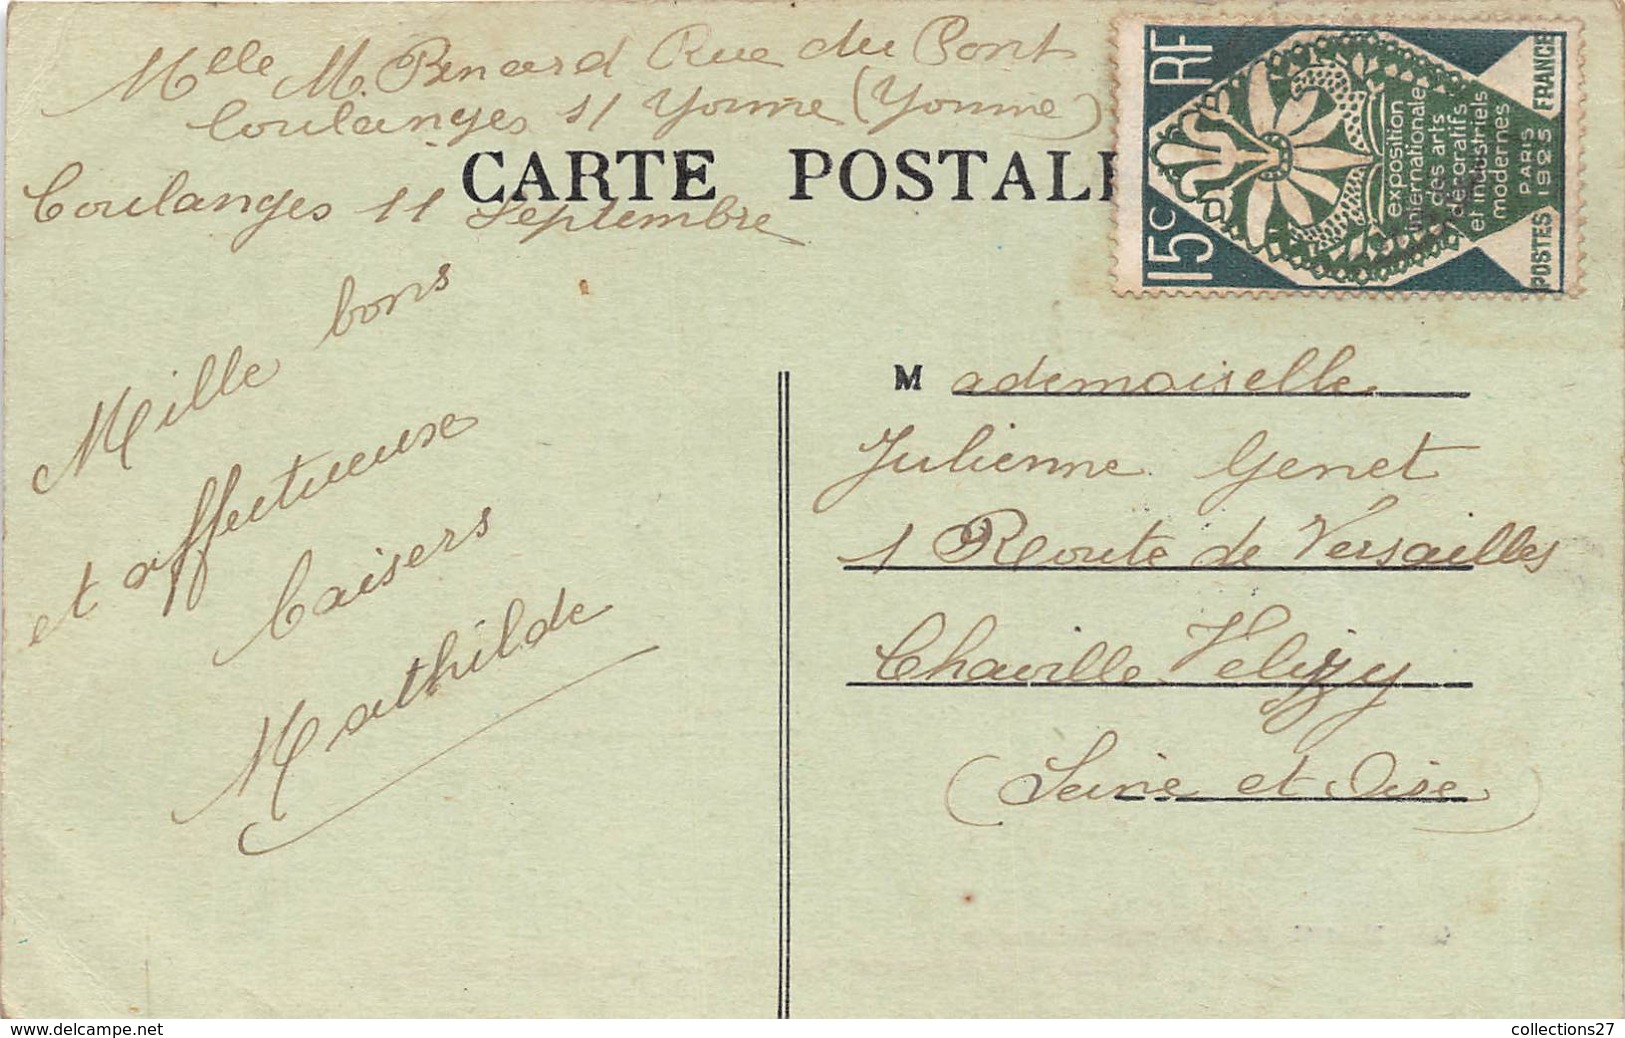 Mlle M. Benard Rue du Pont
Coulanges s/ Yonne (Yonne)
CARTE POSTALE
Coulanges 11 Septembre
Mille bons
et affectueux
baisers
Mathilde
RF
15c
exposition
internationale
des arts
décoratifs
et industriels
modernes
PARIS
1925
POSTES FRANCE
Mademoiselle
Julienne Genet
1 Route de Versailles
Chaville Velizy
(Seine et Oise)
www.delcampe.net
collections27